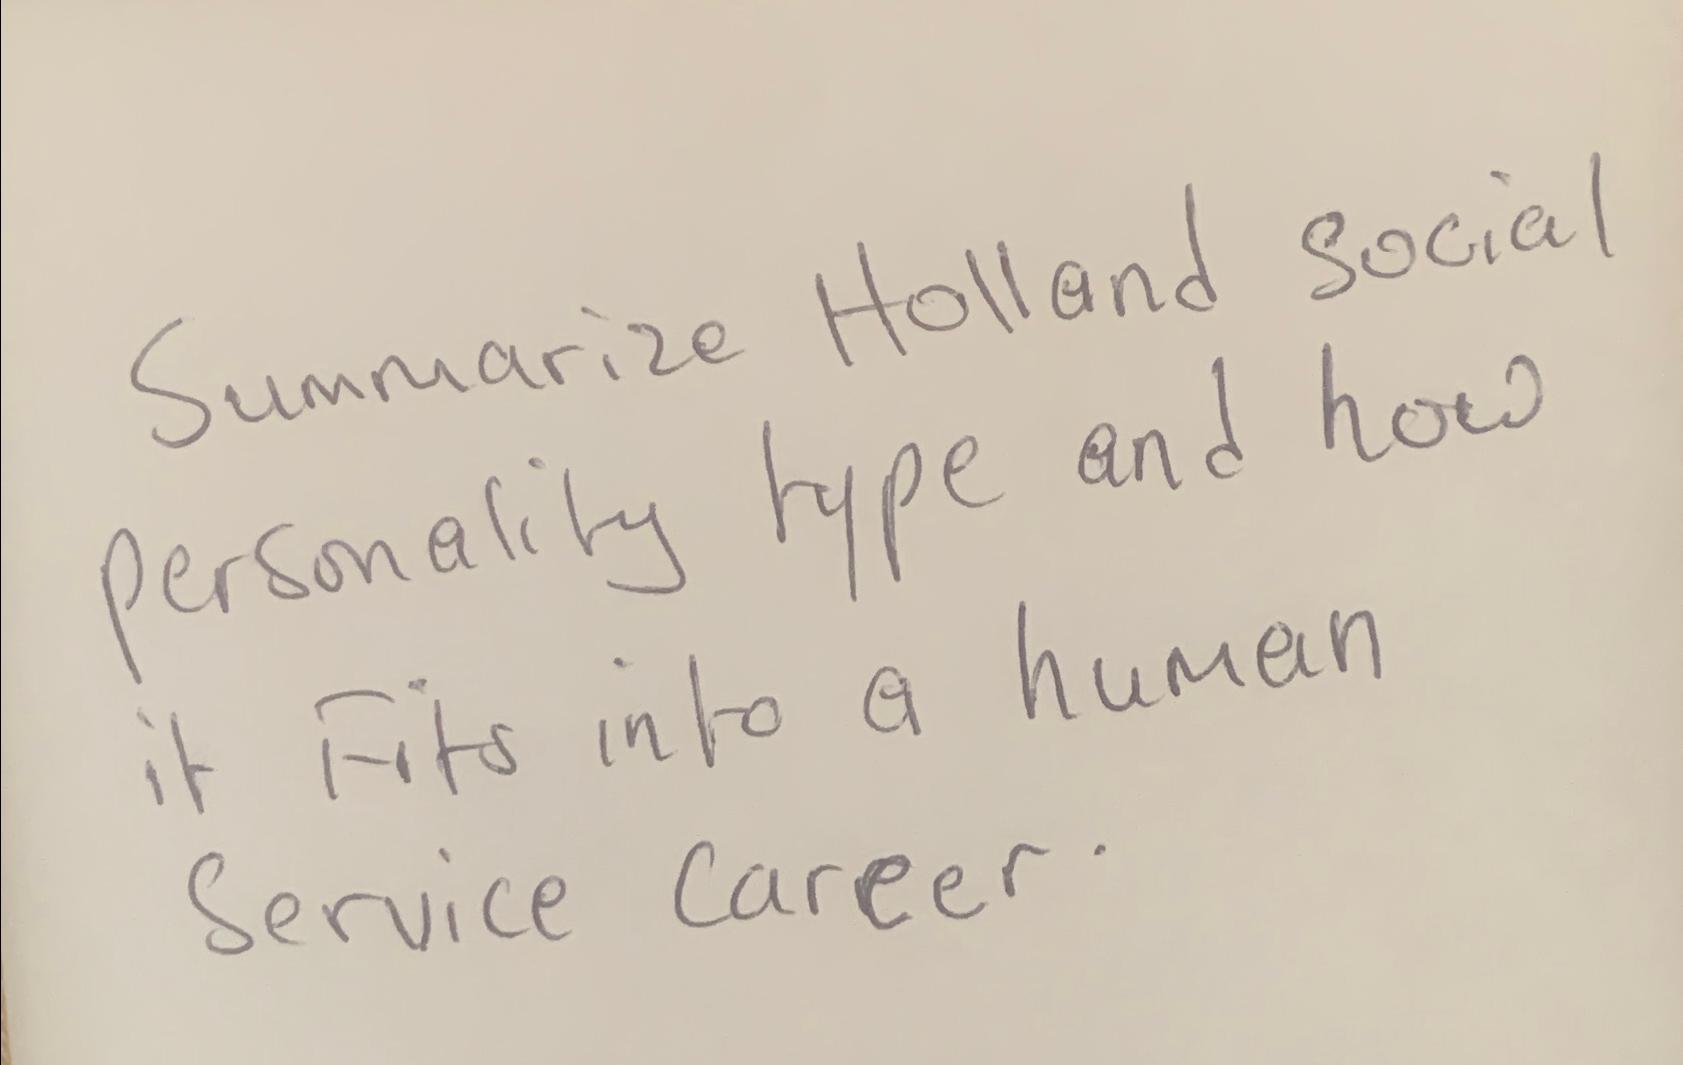 Summarize Holland social
personality type and how
it Fits into a human
Service Career.